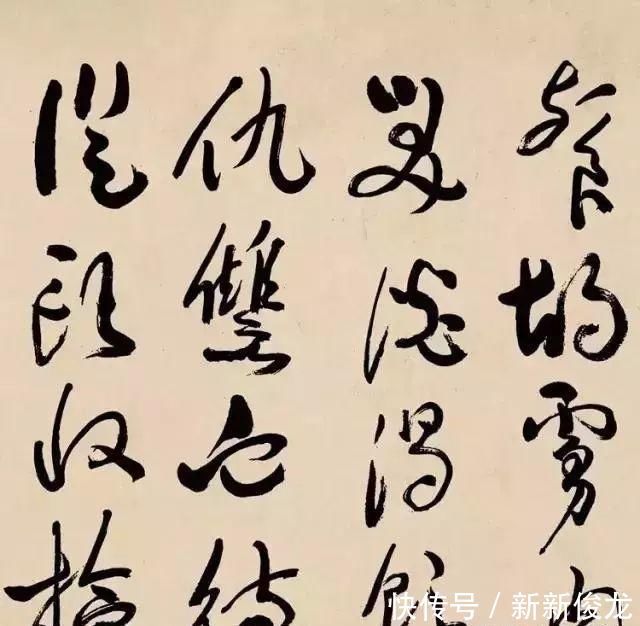 餐胡虜
笑談渴飲
仇讎血待
從頭收拾
快传号 / 新新俊龙